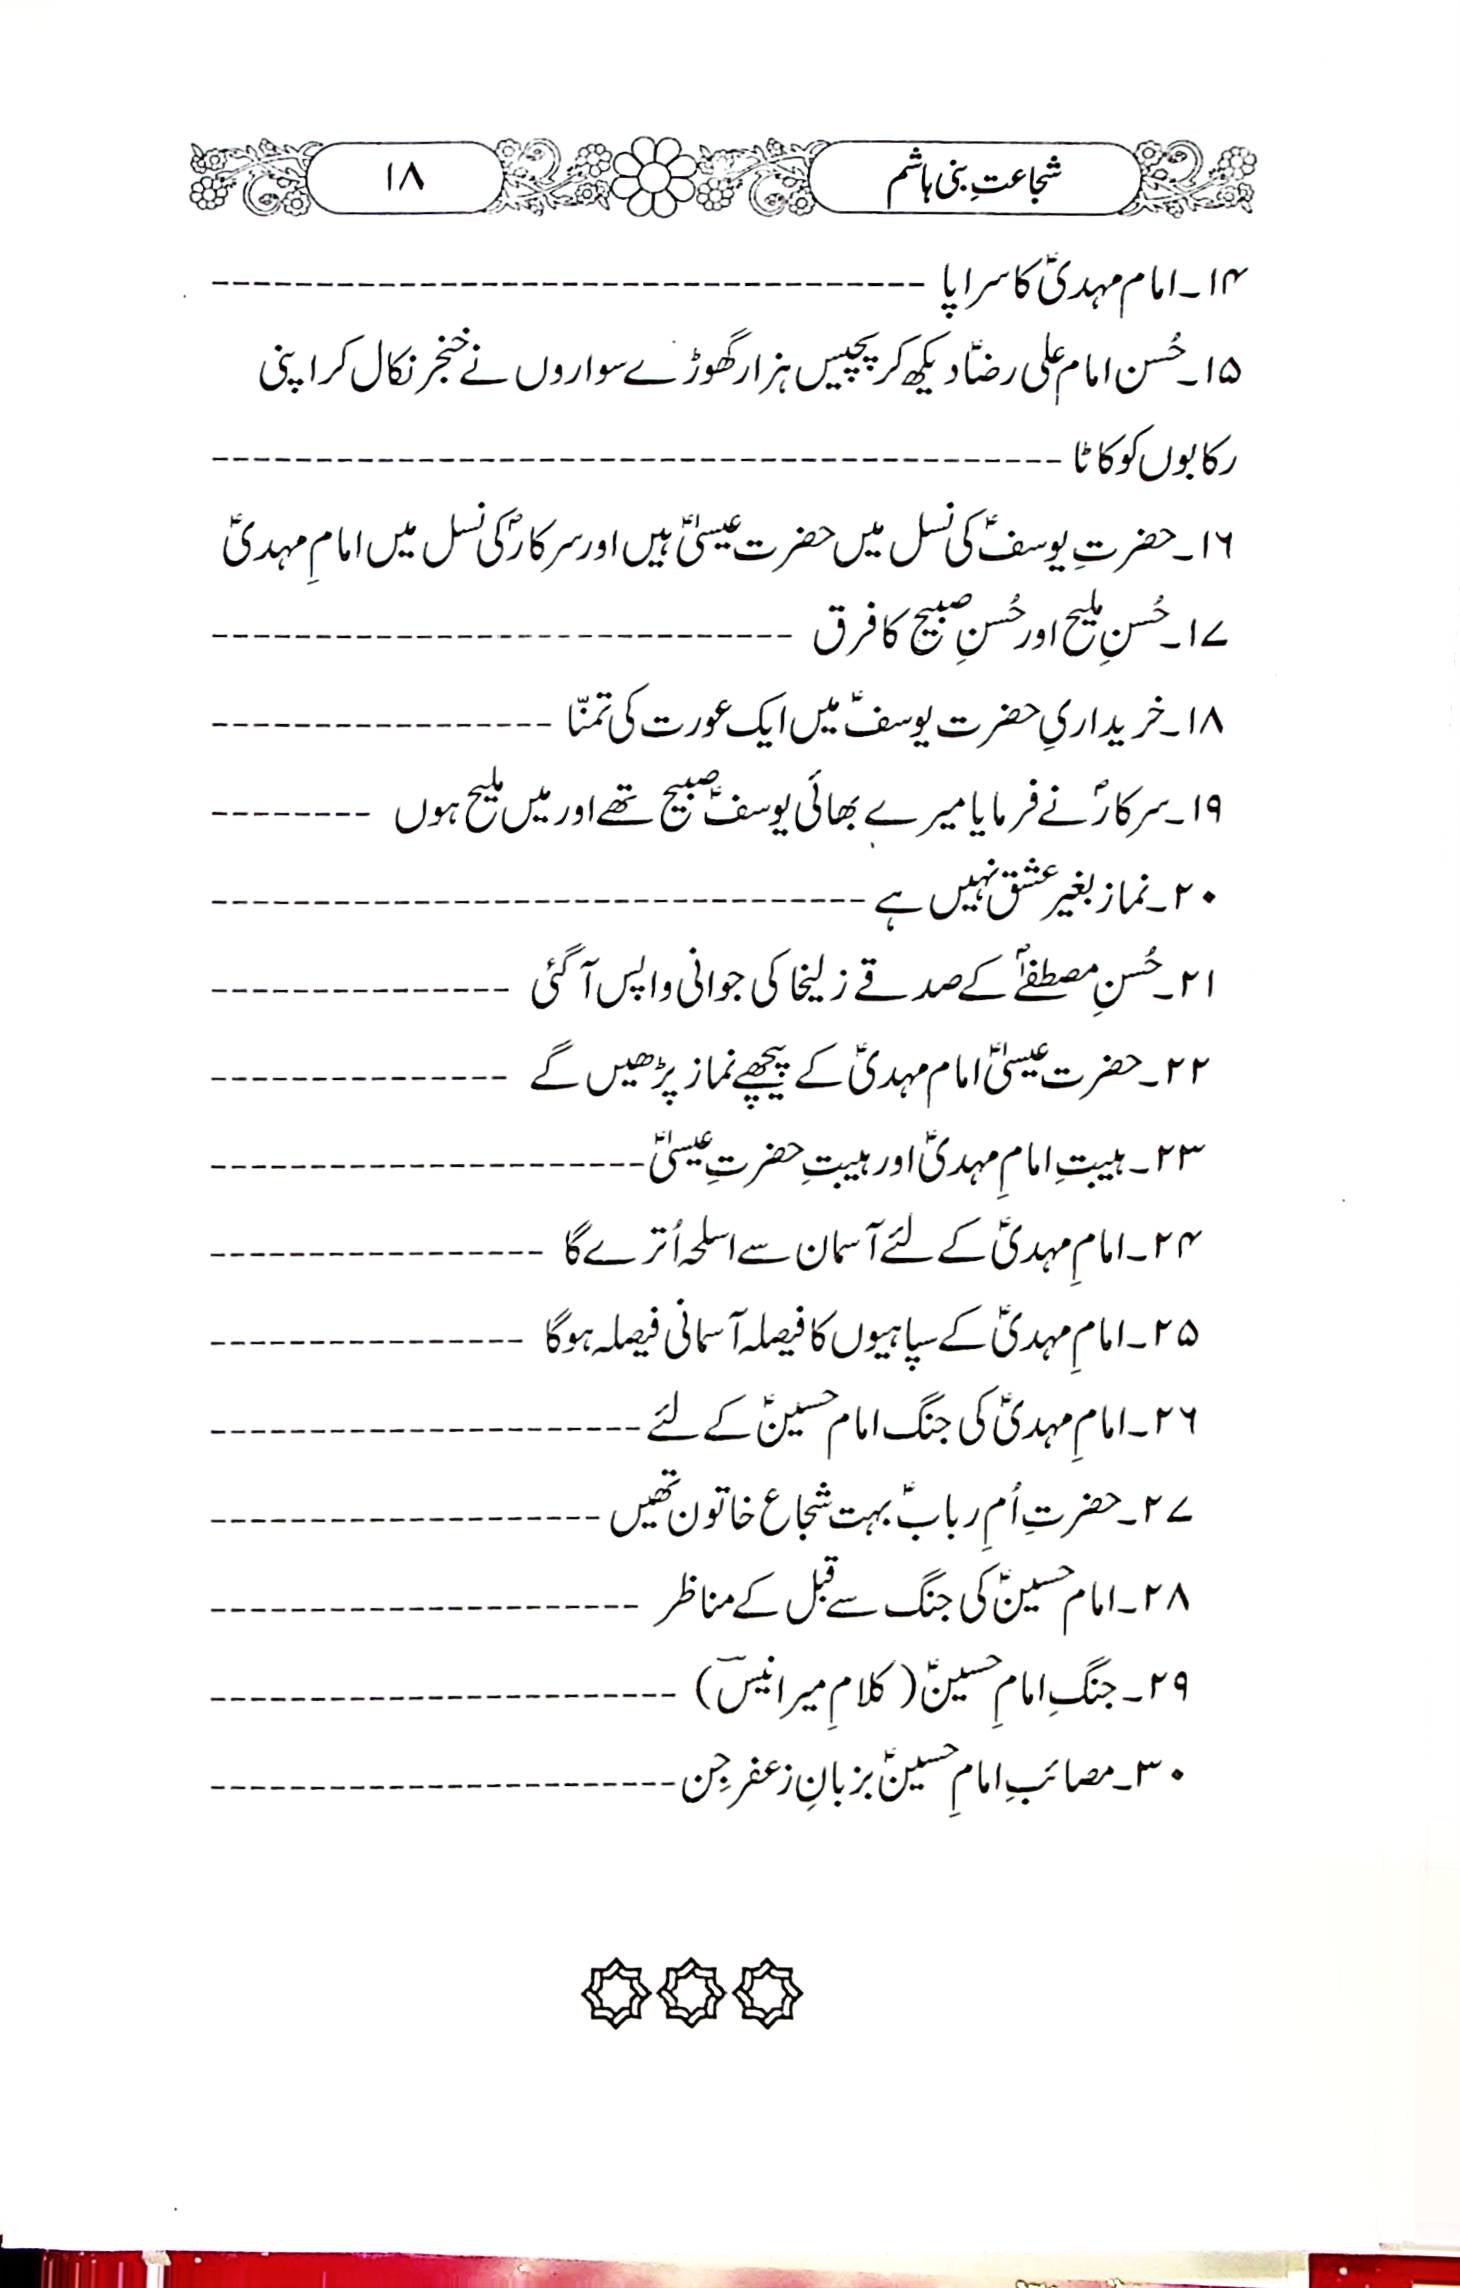 شجاعتِ بنی ہاشم
۱۸
۱۴۔ امام مہدیؑ کا سراپا ----------------------------------
۱۵۔ حُسن امام علی رضاؑ دیکھ کر پچیس ہزار گھوڑے سواروں نے خنجر نکال کر اپنی
رکابوں کو کاٹا ----------------------------------------
۱۶۔ حضرتِ یوسفؑ کی نسل میں حضرت عیسیٰؑ ہیں اور سرکارؐ کی نسل میں امامِ مہدیؑ
۱۷۔ حُسنِ ملیح اور حُسنِ صبیح کا فرق ----------------------------
۱۸۔ خریداریِ حضرت یوسفؑ میں ایک عورت کی تمنّا -----------------
۱۹۔ سرکارؐ نے فرمایا میرے بھائی یوسفؑ صبیح تھے اور میں ملیح ہوں --------
۲۰۔ نماز بغیر عشق نہیں ہے --------------------------------
۲۱۔ حُسنِ مصطفےٰؐ کے صدقے زلیخا کی جوانی واپس آ گئی ---------------
۲۲۔ حضرت عیسیٰؑ امام مہدیؑ کے پیچھے نماز پڑھیں گے ---------------
۲۳۔ ہیبتِ امامِ مہدیؑ اور ہیبتِ حضرتِ عیسیٰؑ ----------------------
۲۴۔ امامِ مہدیؑ کے لئے آسمان سے اسلحہ اُترے گا -----------------
۲۵۔ امامِ مہدیؑ کے سپاہیوں کا فیصلہ آسمانی فیصلہ ہوگا ----------------
۲۶۔ امامِ مہدیؑ کی جنگ امام حسینؑ کے لئے ----------------------
۲۷۔ حضرتِ اُمِ ربابؑ بہت شجاع خاتون تھیں --------------------
۲۸۔ امام حسینؑ کی جنگ سے قبل کے مناظر ----------------------
۲۹۔ جنگِ امامِ حسینؑ (کلامِ میر انیسؔ) ------------------------
۳۰۔ مصائبِ امامِ حسینؑ بزبانِ زعفر جِن ------------------------